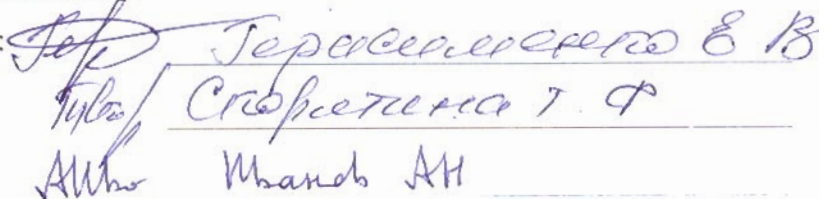 Герасименко Е В
Скорятина Т. Ф
Иванов АН